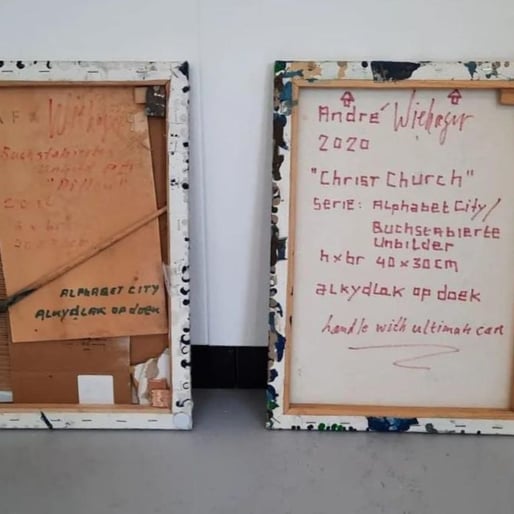 Wiehager
Buchstabierte
2012
ALPHABET CITY
ALKYDLAK OP DOEK
André Wiehager
2020
"Christ Church"
Serie: Alphabet City/
Buchstabierte
Unbilder
h x br 40 x 30 cm
alkydlak op doek
handle with ultimate care